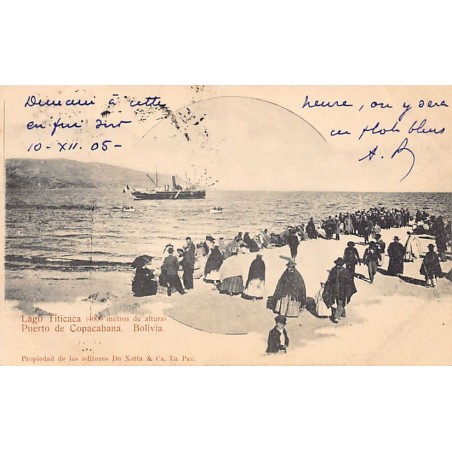 Demain à cette
heure, on y sera
en
10-XII. 05-
A. R.
Lago Titicaca (4000 metros de altura)
Puerto de Copacabana. Bolivia.
Propiedad de los editores De Notta & Ca, La Paz.